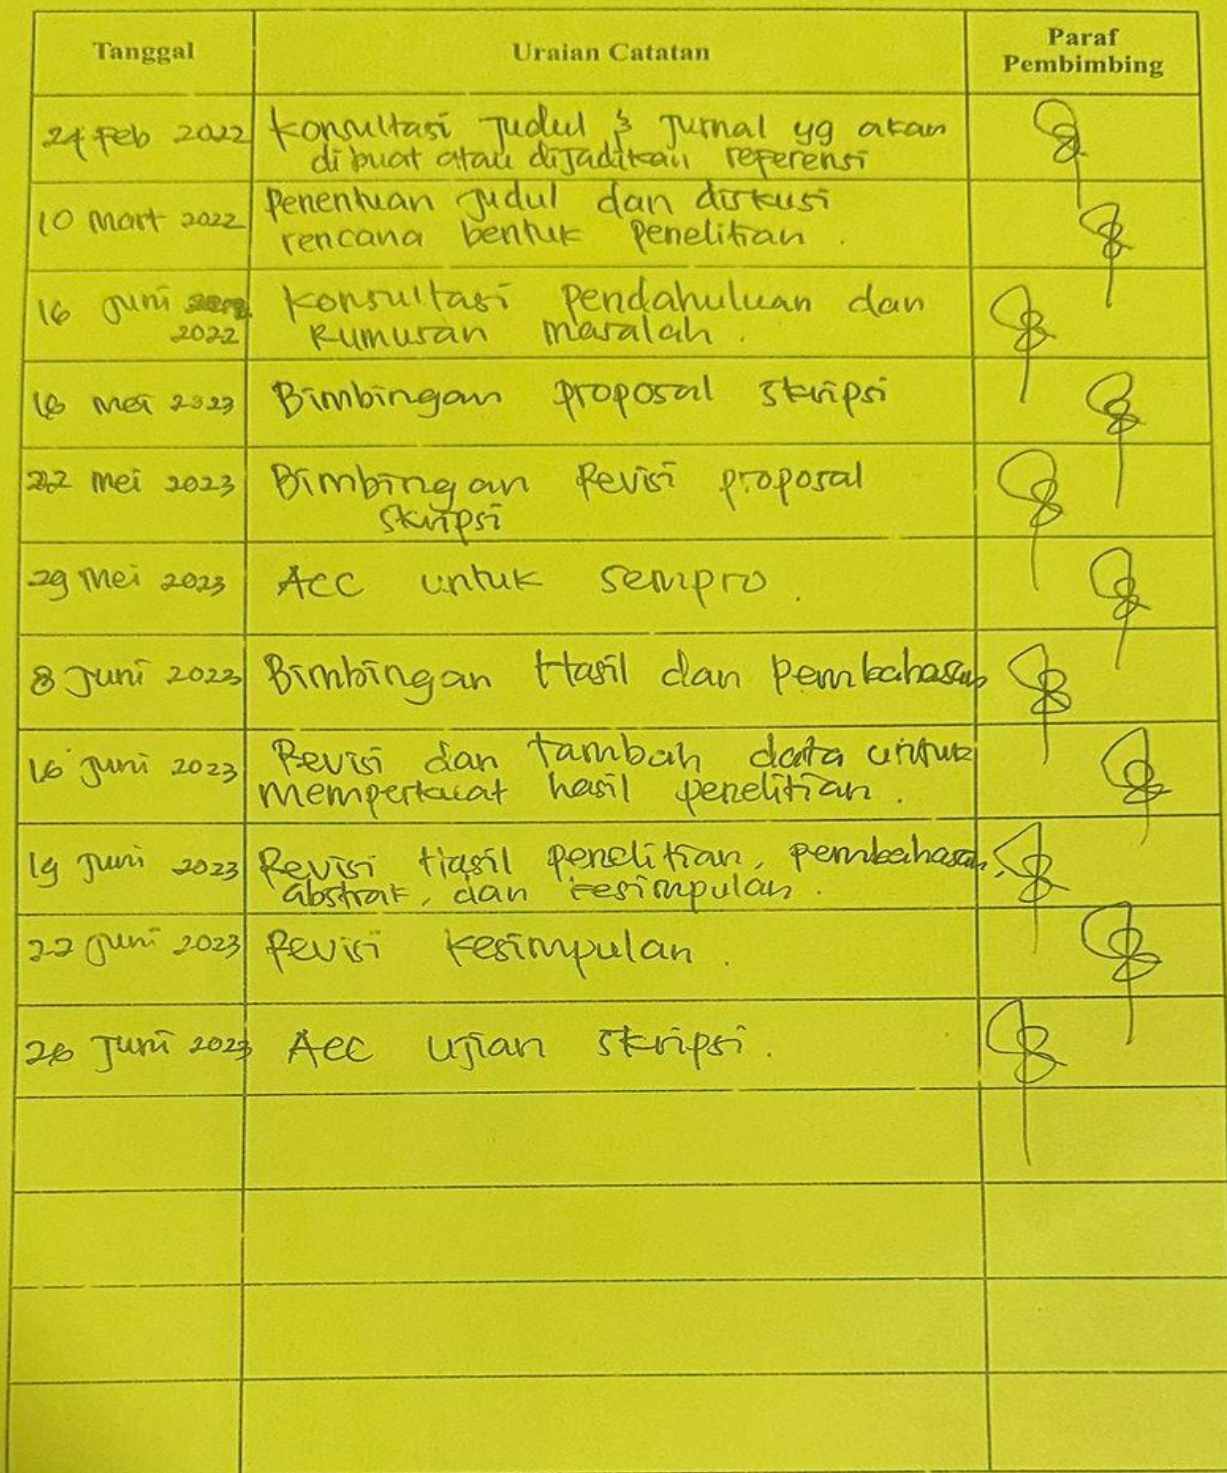 Tanggal
Uraian Catatan
Paraf
Pembimbing
24 Feb 2022
Konsultasi Judul & Jurnal yg akan
dibuat atau dijadikan referensi
10 Mart 2022
Penentuan Judul dan diskusi
rencana bentuk Penelitian.
16 Juni
2022
Konsultasi Pendahuluan dan
Rumusan masalah.
16 mei 2023
Bimbingan proposal skripsi
22 mei 2023
Bimbingan Revisi proposal
skripsi
29 mei 2023
Acc untuk sempro.
8 Juni 2023
Bimbingan Hasil dan Pembahasan
16 Juni 2023
Revisi dan tambah data untuk
memperkuat hasil penelitian.
19 Juni 2023
Revisi Hasil penelitian, pembahasan,
abstrak, dan kesimpulan.
22 Juni 2023
Revisi Kesimpulan.
26 Juni 2023
Acc Ujian Skripsi.